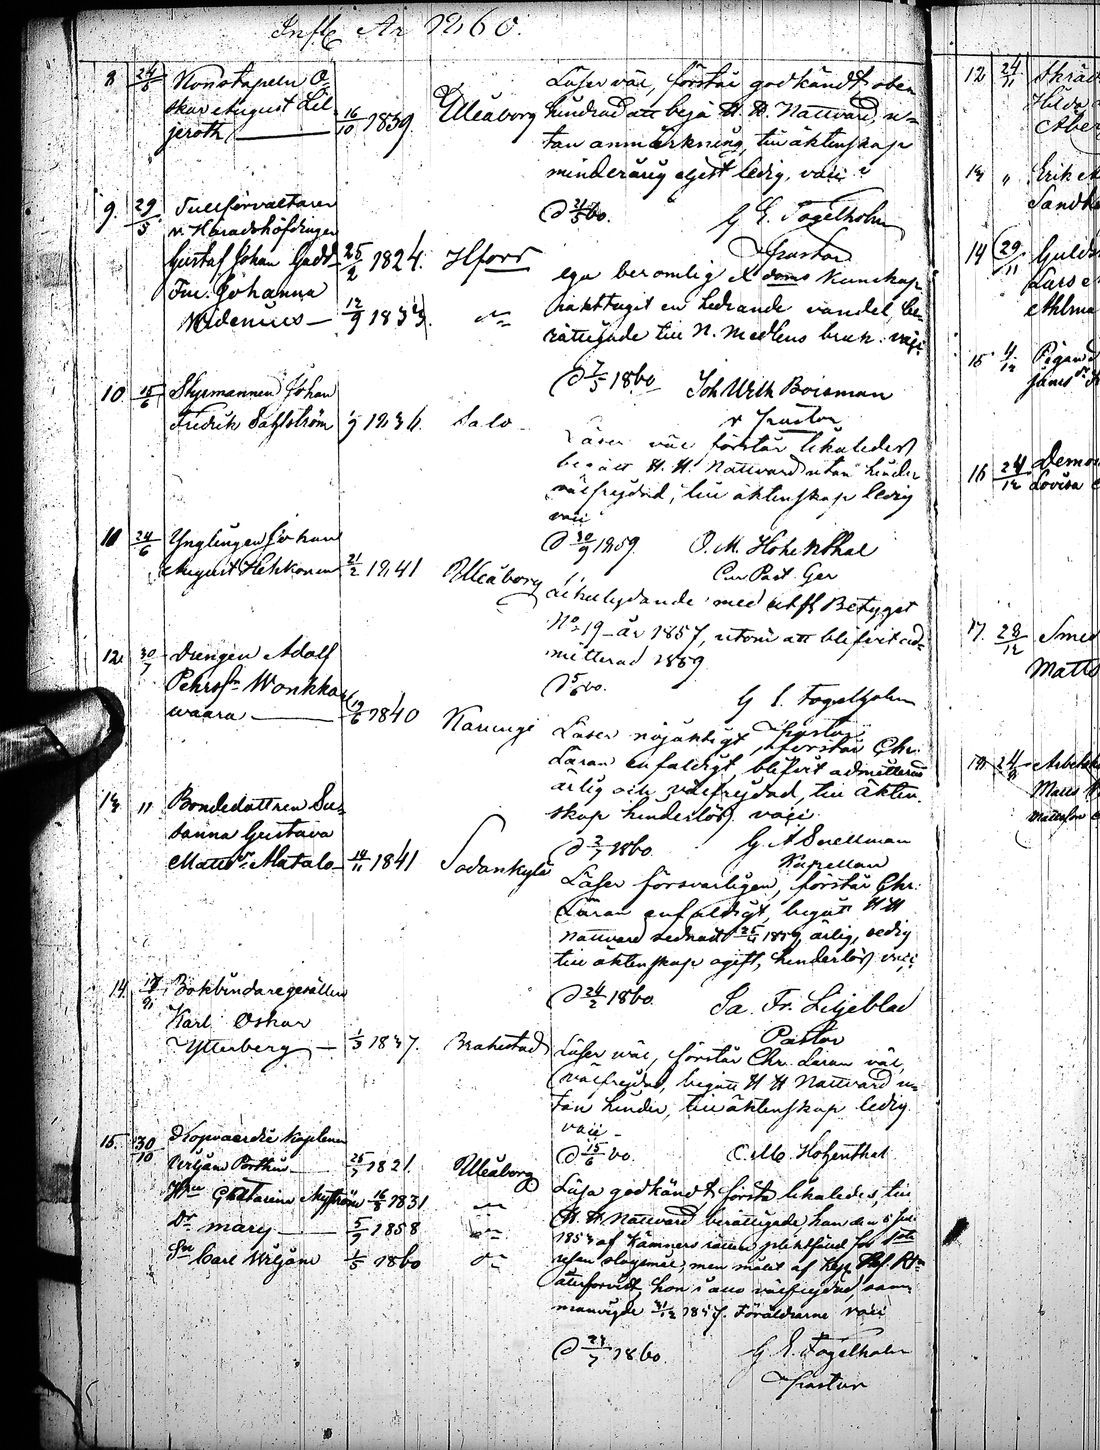 Infl. År 1860.
8 24/5 Konstapeln O-
skar August Lil-
jeroth 16/10 1839. Uleåborg
Läser väl, förstår godkändt, oben
hindrad att begå H. H. Nattvard, u-
tan anmärkning, till äktenskap
minderårig eljest ledig, vaci
D 21/5 60. G E. Fogelholm
Pastor
9. 29/5 Tullförvaltaren
v. Häradshöfdingen
Gustaf Johan Gadd 25/2 1824. Hfors
Fru. Johanna
Widenius 12/9 1833.
ega beromlig Kr doms Kunskap
iakttagit en hedrande vandel, be-
rättigade till N. Medlens bruk. vaci
D 7/5 1860 Joh Wilh Boisman
v Pastor
10 15/6 Styrmannen Johan
Fredrik Dahlström 1/9 1836. Salo
Läser väl förstår likaledes
begått H. H. Nattvard utan hinder
välfrejdad, till äktenskap ledig
vaci
D 30/9 1859. O. M. Hohenthal
Cur Past. Ger
11 24/6 Ynglingen Johan
August Heikkonen 21/2 1841 Uleåborg
Likalydande med utfl Betyget
No 19 år 1857, utom att blifvit ad-
mitterad 1859
D 5/6 60. G E. Fogelholm
Pastor
12 30/7 Drengen Adolf
Pehrsson Wonkka
waara 19/6 1840 Karungi
Läser nöjaktigt, förstår Chr.
Läran enfaldigt, blifvit admitterad
ärlig och välfrejdad, till äkten-
skap hinderlös, vaci
D 2/7 1860 G A Snellman
Kapellan
13 " Bondedottren Su-
sanna Gustava
Mattsdr Alatalo 14/11 1841 Sodankylä
Läser försvarligen, förstår Chr.
Läran enfaldigt, begått H H
Nattvard sednast 25/4 1859, ärlig, ledig
till äktenskap ogift, hinderlös vaci
D 24/2 1860. Sa. Fr. Liljeblad
Pastor
14. Bokbindaregesällen
Karl Oskar
Ytterberg 1/3 1837. Brahestad
Läser väl, förstår Chr. Läran väl,
välfrejdad, begått H H Nattvard u-
tan hinder, till äktenskap ledig
vaci
D 15/6 60. O. M. Hohenthal
15. 30/10 Kopvaerdie kaptenen
Wiljam Porthin 25/7 1821 Uleåborg
Hu Chatarina Nyström 16/8 1831
Dr Mary 5/9 1858
Sn Carl Wiljam 1/5 1860
Läsa godkändt förstå likaledes, till
H. H Nattvard berättigade han den 5 Juli
1854 af Kämners rätten pliktfäld för 1sta
resan slagsmål, men målet af Kejs Hof. Rtn
återförvist, hon i allo välfrejdad, sam-
manvigde 31/12 1857. Föräldrarne vaci
D 24/7 1860. G E. Fogelholm
Pastor
12 24/11 Skräd
Hilda
13 " Erik
Sandh
14 29/11 Gulds
Lars
15 4/12 Pigan
16 24/12 Demoi
Lovisa
17. 28/12 Smed
Matts
Arbetsk
Matts